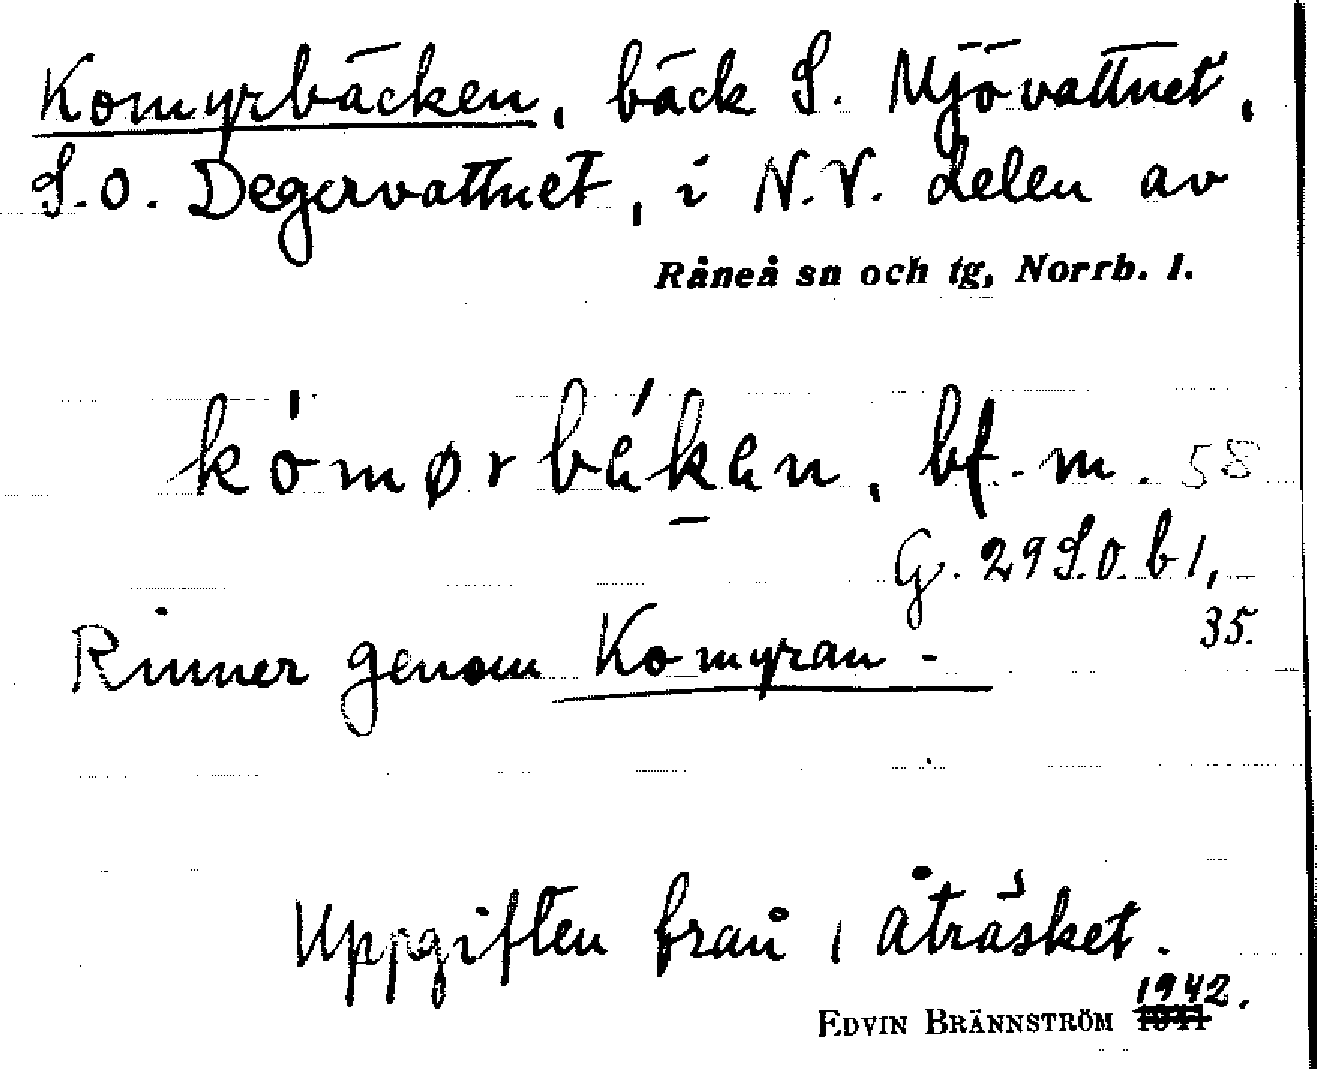 Komyrbäcken, bäck S. Mjövattnet,
S.O. Degervattnet, i N.V. delen av
Råneå sn och tg, Norrb. l.
bf. m. 58
G. 29 S.O. b 1,
35.
Rinner genom Komyran -
Uppgiften från Åträsket.
1942.
EDVIN BRÄNNSTRÖM 1941